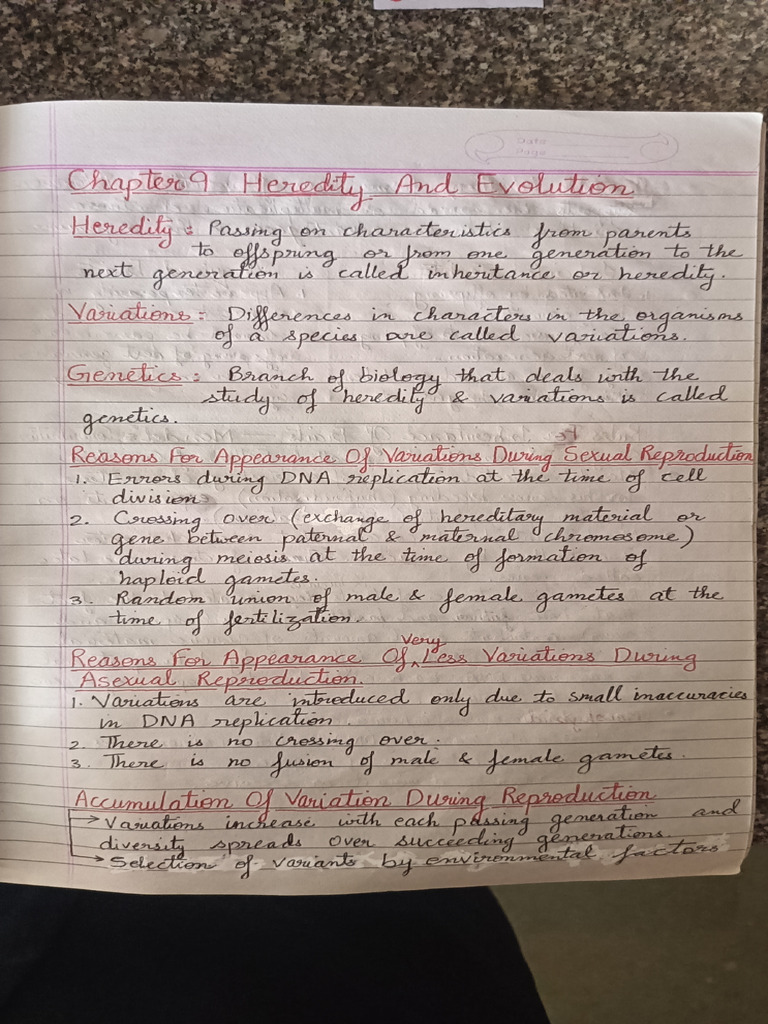 Date
Page
Chapter 9 : Heredity And Evolution
Heredity : Passing on characteristics from parents
to offspring or from one generation to the
next generation is called inheritance or heredity.
Variations : Differences in characters in the organisms
of a species are called variations.
Genetics : Branch of biology that deals with the
study of heredity & variations is called
genetics.
Reasons For Appearance Of Variations During Sexual Reproduction
1. Errors during DNA replication at the time of cell
division
2. Crossing over (exchange of hereditary material or
gene between paternal & maternal chromosome)
during meiosis at the time of formation of
haploid gametes.
3. Random union of male & female gametes at the
time of fertilization.
Reasons For Appearance Of Very Less Variations During
Asexual Reproduction.
1. Variations are introduced only due to small inaccuracies
in DNA replication.
2. There is no crossing over.
3. There is no fusion of male & female gametes.
Accumulation Of Variation During Reproduction
→ Variations increase with each passing generation and
diversity spreads over succeeding generations.
→ Selection of variants by environmental factors